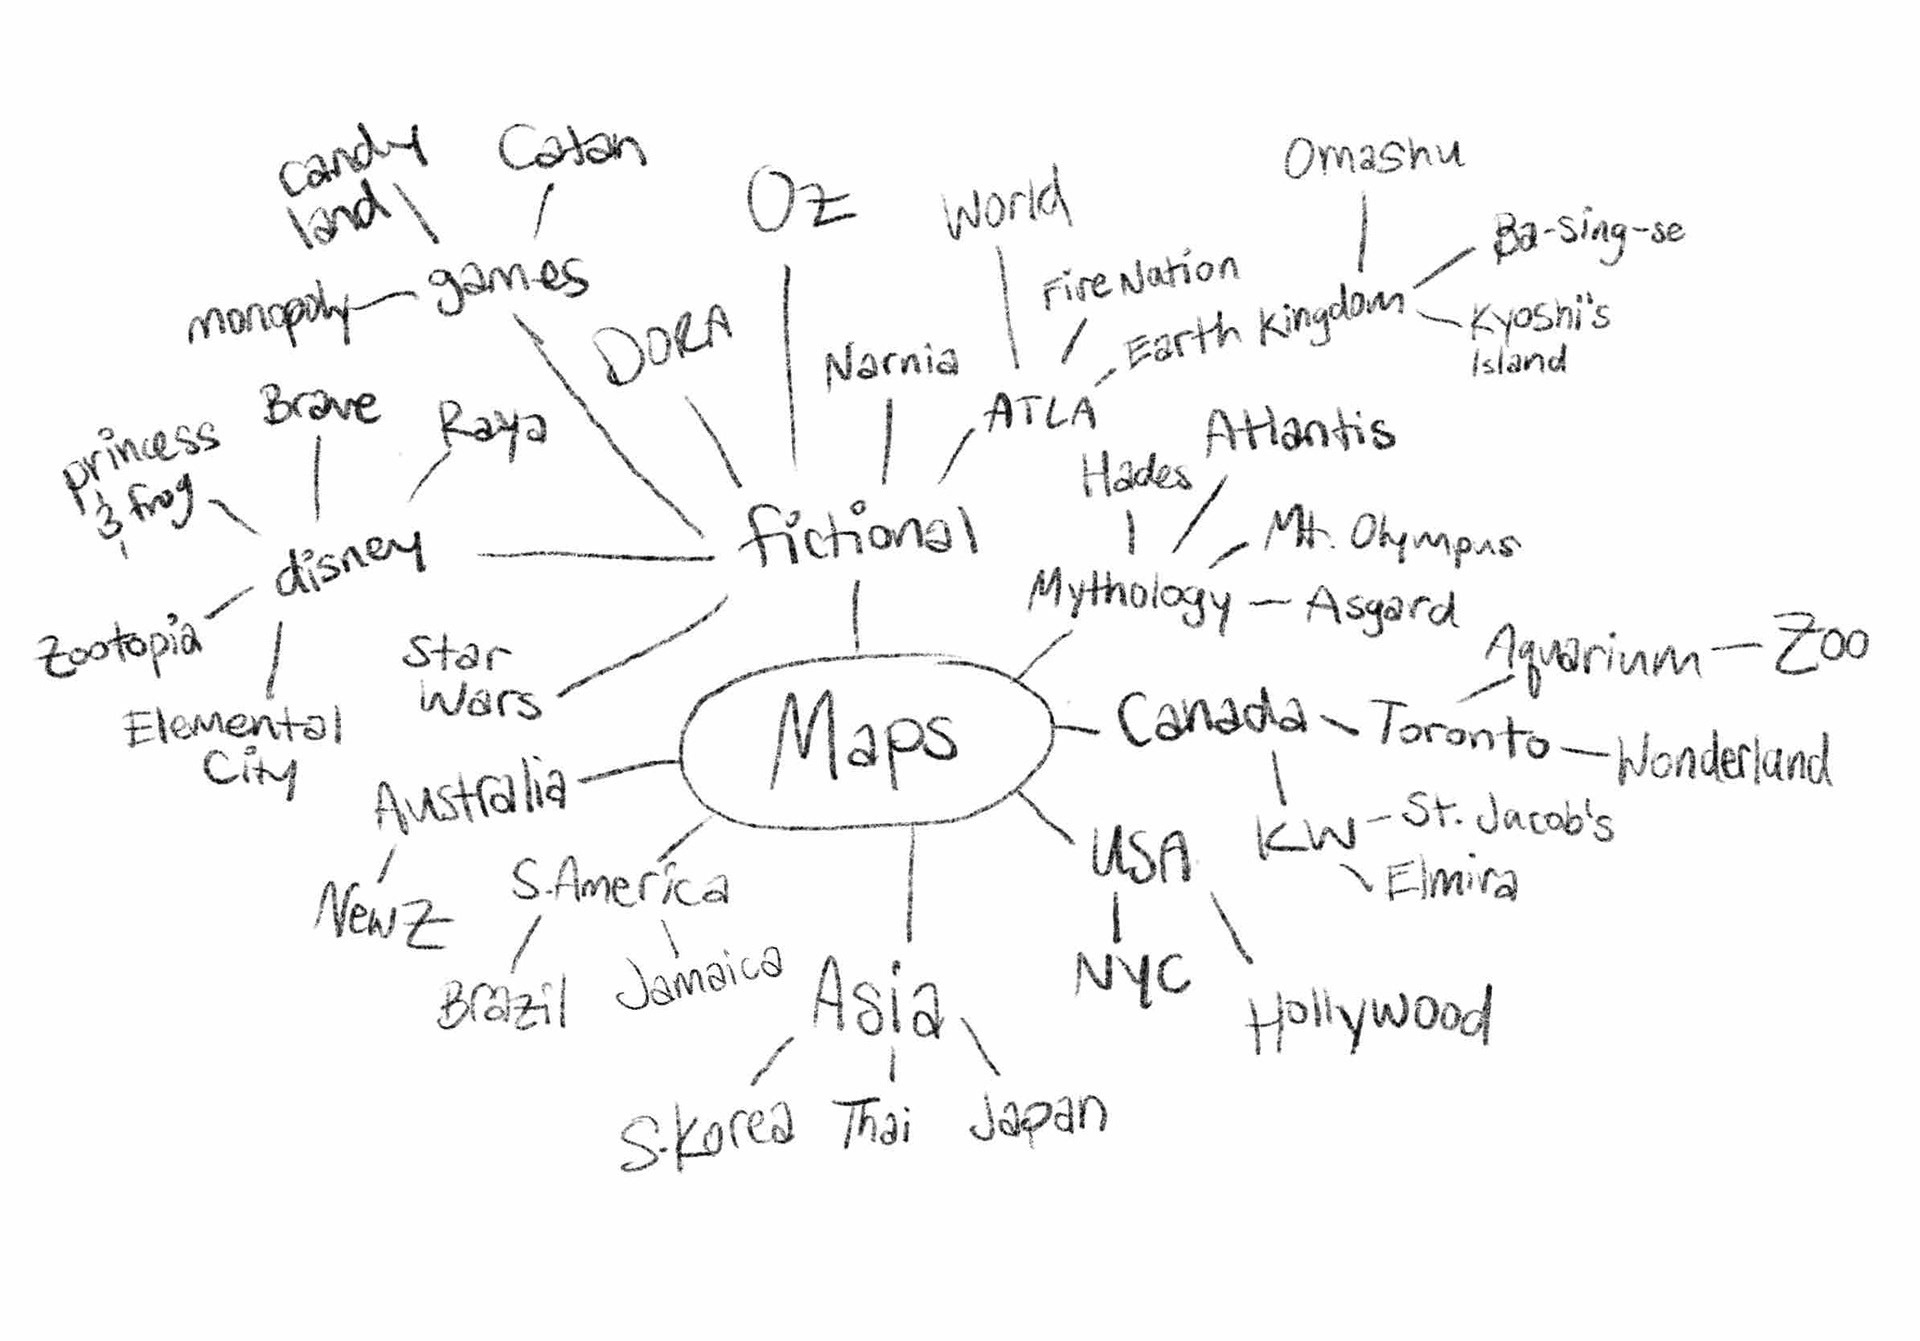 candy
land
Catan
monopoly
games
Oz
World
Omashu
Ba-Sing-se
Fire Nation
Earth Kingdom
Kyoshi's
Island
DORA
Narnia
ATLA
Brave
Raya
princess
& frog
disney
Zootopia
Elemental
City
fictional
Star
Wars
Hades
Atlantis
Mt. Olympus
Mythology
Asgard
Maps
Aquarium
Zoo
Canada
Toronto
Wonderland
KW
St. Jacob's
Elmira
Australia
New Z
S.America
Brazil
Jamaica
USA
NYC
Hollywood
Asia
S.Korea
Thai
Japan